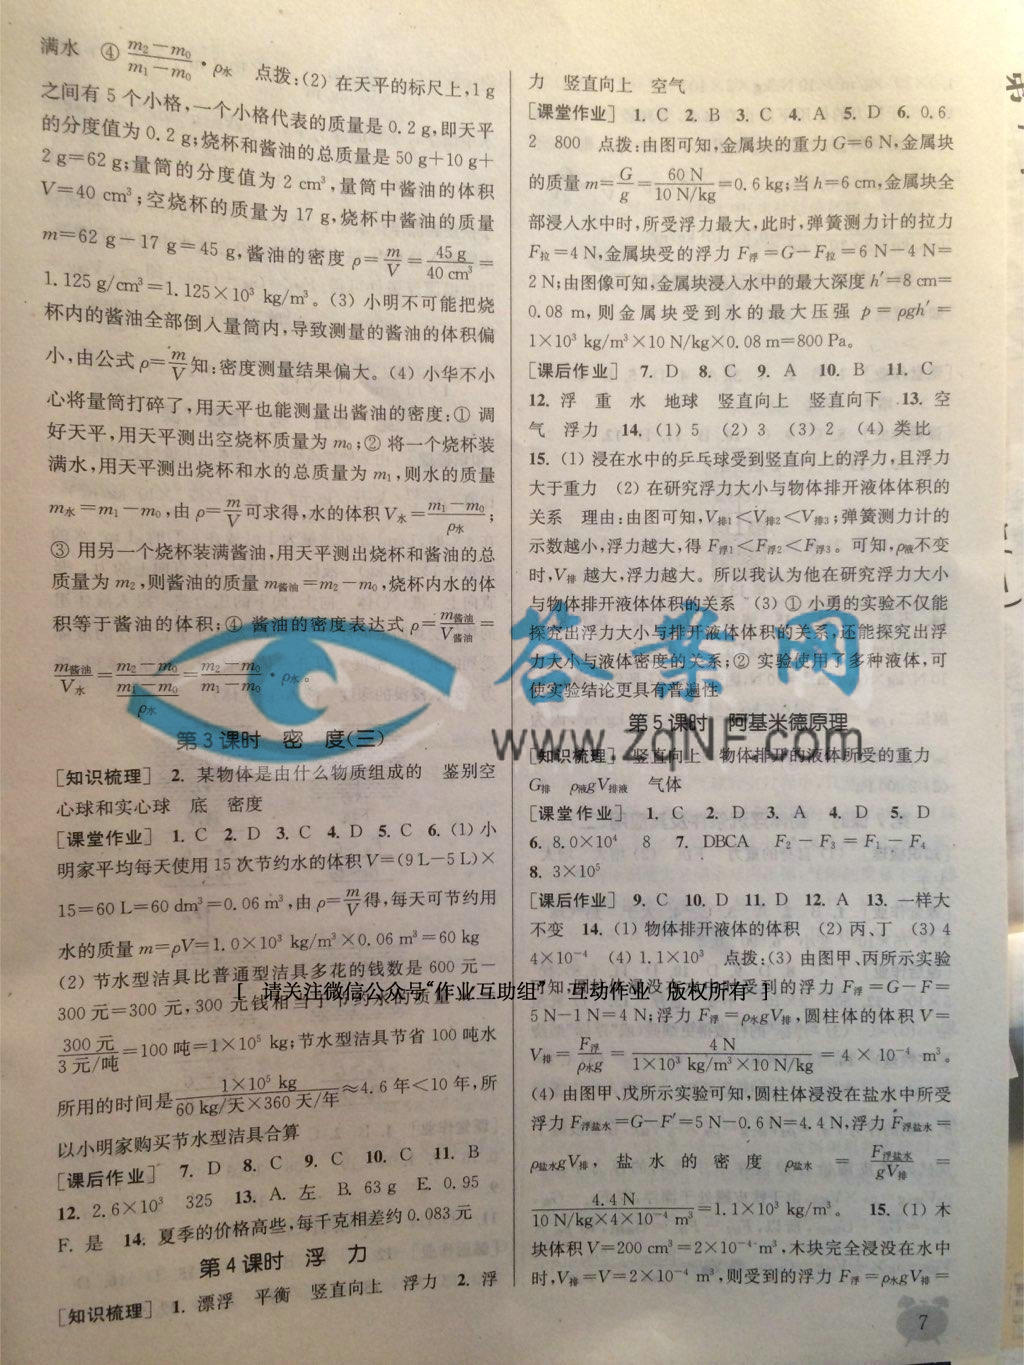 满水 ④ (m₂－m₀)/(m₁－m₀)·ρ水 点拨:(2) 在天平的标尺上,1 g
之间有 5 个小格,一个小格代表的质量是 0.2 g,即天平
的分度值为 0.2 g;烧杯和酱油的总质量是 50 g＋10 g＋
2 g＝62 g;量筒的分度值为 2 cm³,量筒中酱油的体积
V＝40 cm³;空烧杯的质量为 17 g,烧杯中酱油的质量
m＝62 g－17 g＝45 g,酱油的密度 ρ＝m/V＝45 g/40 cm³＝
1.125 g/cm³＝1.125×10³ kg/m³。(3) 小明不可能把烧
杯内的酱油全部倒入量筒内,导致测量的酱油的体积偏
小,由公式 ρ＝m/V知:密度测量结果偏大。(4) 小华不小
心将量筒打碎了,用天平也能测量出酱油的密度:① 调
好天平,用天平测出空烧杯质量为 m₀;② 将一个烧杯装
满水,用天平测出烧杯和水的总质量为 m₁,则水的质量
m水＝m₁－m₀,由 ρ＝m/V可求得,水的体积V水＝(m₁－m₀)/ρ水;
③ 用另一个烧杯装满酱油,用天平测出烧杯和酱油的总
质量为 m₂,则酱油的质量 m酱油＝m₂－m₀,烧杯内水的体
积等于酱油的体积;④ 酱油的密度表达式 ρ＝m酱油/V酱油＝
m酱油/V水＝(m₂－m₀)/((m₁－m₀)/ρ水)＝(m₂－m₀)/(m₁－m₀)·ρ水。
第 3 课时 密 度(三)
[知识梳理] 2. 某物体是由什么物质组成的 鉴别空
心球和实心球 底 密度
[课堂作业] 1. C 2. D 3. C 4. D 5. C 6. (1) 小
明家平均每天使用 15 次节约水的体积V＝(9 L－5 L)×
15＝60 L＝60 dm³＝0.06 m³,由 ρ＝m/V得,每天可节约用
水的质量 m＝ρV＝1.0×10³ kg/m³×0.06 m³＝60 kg
(2) 节水型洁具比普通型洁具多花的钱数是 600 元－
300 元＝300 元,300 元钱相当于节约水的质量
300 元/3 元/吨＝100 吨＝1×10⁵ kg;节水型洁具节省 100 吨水
所用的时间是1×10⁵ kg/60 kg/天×360 天/年≈4.6 年<10 年,所
以小明家购买节水型洁具合算
[课后作业] 7. D 8. C 9. C 10. C 11. B
12. 2.6×10³ 325 13. A. 左 B. 63 g E. 0.95
F. 是 14. 夏季的价格高些,每千克相差约 0.083 元
第 4 课时 浮 力
[知识梳理] 1. 漂浮 平衡 竖直向上 浮力 2. 浮
力 竖直向上 空气
[课堂作业] 1. C 2. B 3. C 4. A 5. D 6. 0.6
2 800 点拨:由图可知,金属块的重力 G＝6 N,金属块
的质量 m＝G/g＝60 N/10 N/kg＝0.6 kg;当 h＝6 cm,金属块全
部浸入水中时,所受浮力最大,此时,弹簧测力计的拉力
F拉＝4 N,金属块受的浮力 F浮＝G－F拉＝6 N－4 N＝
2 N;由图像可知,金属块浸入水中的最大深度 h′＝8 cm＝
0.08 m,则金属块受到水的最大压强 p＝ρgh′＝
1×10³ kg/m³×10 N/kg×0.08 m＝800 Pa。
[课后作业] 7. D 8. C 9. A 10. B 11. C
12. 浮 重 水 地球 竖直向上 竖直向下 13. 空
气 浮力 14. (1) 5 (2) 3 (3) 2 (4) 类比
15. (1) 浸在水中的乒乓球受到竖直向上的浮力,且浮力
大于重力 (2) 在研究浮力大小与物体排开液体体积的
关系 理由:由图可知,V排1＜V排2＜V排3;弹簧测力计的
示数越小,浮力越大,得 F浮1＜F浮2＜F浮3。可知,ρ液不变
时,V排 越大,浮力越大。所以我认为他在研究浮力大小
与物体排开液体体积的关系 (3) ① 小勇的实验不仅能
探究出浮力大小与排开液体体积的关系,还能探究出浮
力大小与液体密度的关系;② 实验使用了多种液体,可
使实验结论更具有普遍性
第 5 课时 阿基米德原理
[知识梳理] 竖直向上 物体排开的液体所受的重力
G排 ρ液gV排液 气体
[课堂作业] 1. C 2. D 3. A 4. D 5. D
6. 8.0×10⁴ 8 7. DBCA F₂－F₃＝F₁－F₄
8. 3×10⁵
[课后作业] 9. C 10. D 11. D 12. A 13. 一样大
不变 14. (1) 物体排开液体的体积 (2) 丙、丁 (3) 4
4×10⁻⁴ (4) 1.1×10³ 点拨:(3) 由图甲、丙所示实验
可知,圆柱体浸没在水中时受到的浮力 F浮＝G－F＝
5 N－1 N＝4 N;浮力 F浮＝ρ水gV排,圆柱体的体积 V＝
V排＝F浮/ρ水g＝4 N/1×10³ kg/m³×10 N/kg＝4×10⁻⁴ m³。
(4) 由图甲、戊所示实验可知,圆柱体浸没在盐水中所受
浮力 F浮盐水＝G－F′＝5 N－0.6 N＝4.4 N,浮力 F浮盐水＝
ρ盐水gV排,盐水的密度 ρ盐水＝F浮盐水/gV排＝
4.4 N/10 N/kg×4×10⁻⁴ m³＝1.1×10³ kg/m³。 15. (1) 木
块体积V＝200 cm³＝2×10⁻⁴ m³,木块完全浸没在水中
时,V排＝V＝2×10⁻⁴ m³,则受到的浮力 F浮＝ρ水gV排＝
7
答案网
www.zqlNF.com
[ 请关注微信公众号“作业互助组” 互动作业 版权所有 ]